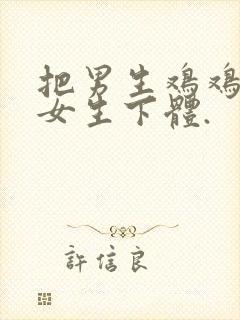 把男生鸡鸡
女生下體.
許信良